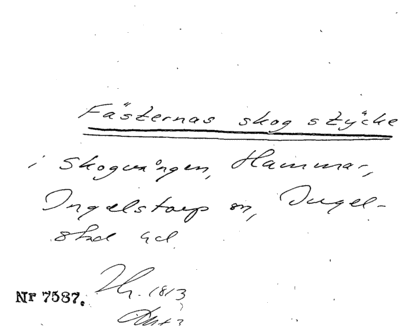 Fästernas skog stycke
i Skogvången, Hammar,
Ingelstorp sn, Ingel-
stad hd.
1813
Nr 7587.